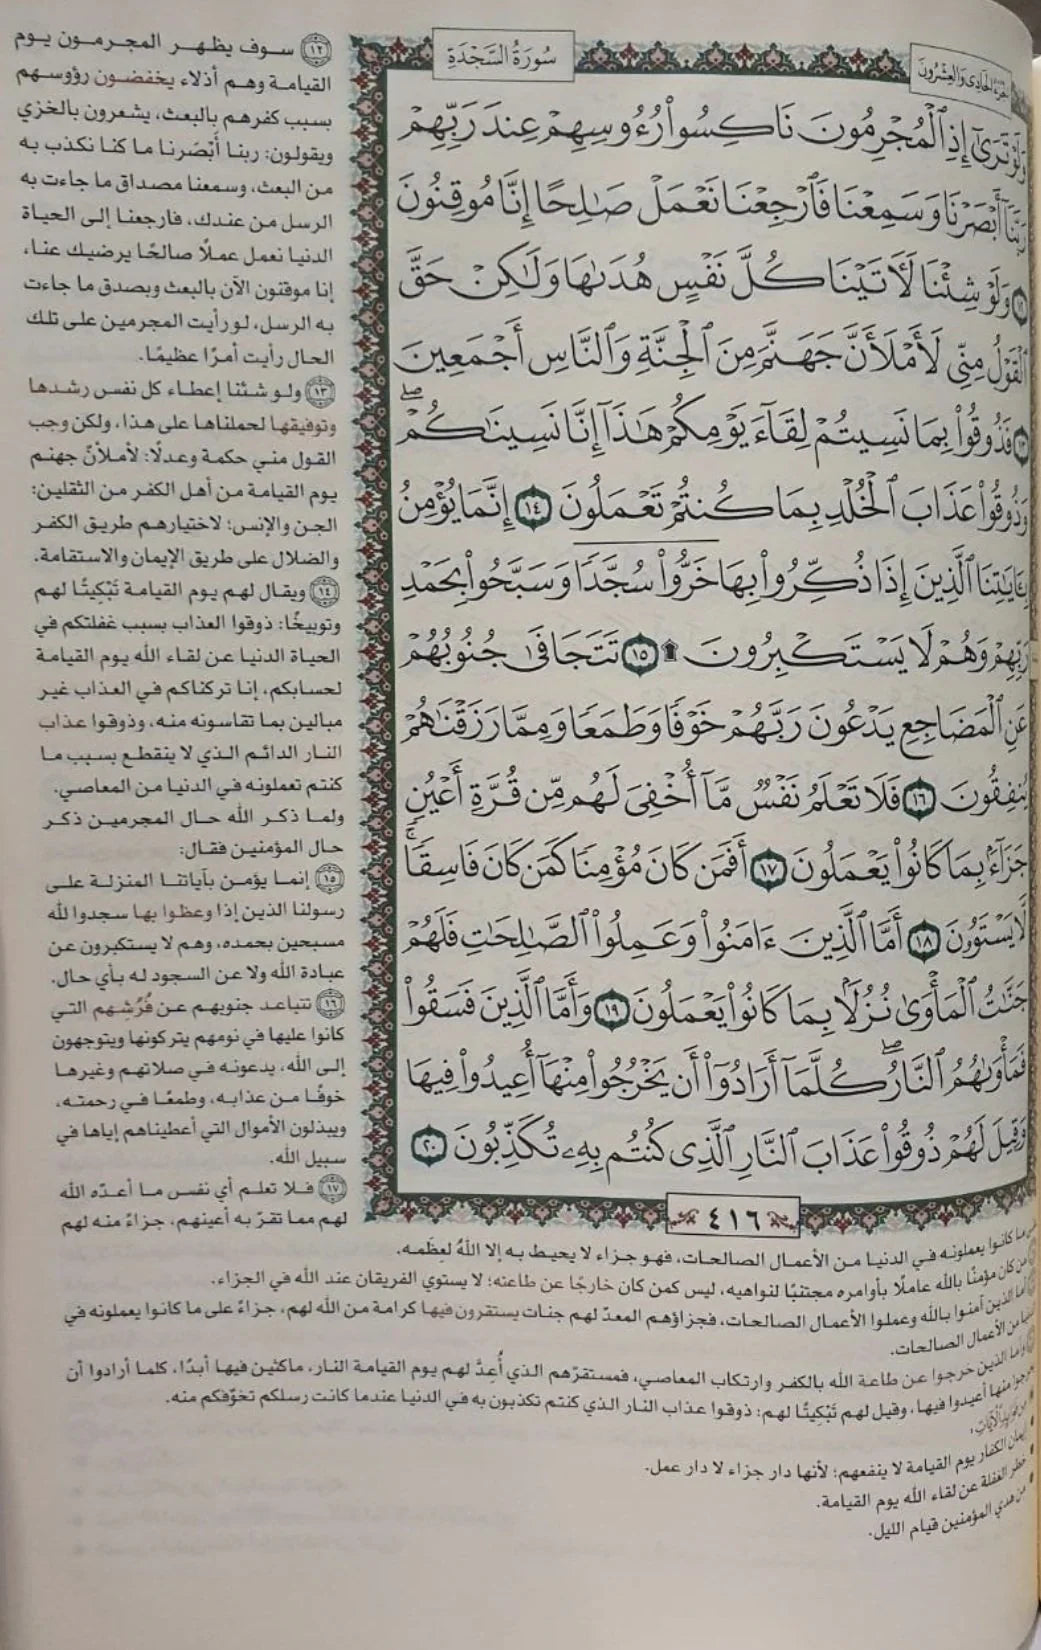 سُورَةُ السَّجْدَةِ
الجُزْءُ الحَادِي وَالعِشْرُونَ
وَلَوْ تَرَىٰٓ إِذِ ٱلْمُجْرِمُونَ نَاكِسُوا۟ رُءُوسِهِمْ عِندَ رَبِّهِمْ
رَبَّنَآ أَبْصَرْنَا وَسَمِعْنَا فَٱرْجِعْنَا نَعْمَلْ صَٰلِحًا إِنَّا مُوقِنُونَ
١٢ وَلَوْ شِئْنَا لَءَاتَيْنَا كُلَّ نَفْسٍ هُدَىٰهَا وَلَٰكِنْ حَقَّ
ٱلْقَوْلُ مِنِّى لَأَمْلَأَنَّ جَهَنَّمَ مِنَ ٱلْجِنَّةِ وَٱلنَّاسِ أَجْمَعِينَ
١٣ فَذُوقُوا۟ بِمَا نَسِيتُمْ لِقَآءَ يَوْمِكُمْ هَٰذَآ إِنَّا نَسِينَٰكُمْ ۖ
وَذُوقُوا۟ عَذَابَ ٱلْخُلْدِ بِمَا كُنتُمْ تَعْمَلُونَ ١٤ إِنَّمَا يُؤْمِنُ
بِـَٔايَٰتِنَا ٱلَّذِينَ إِذَا ذُكِّرُوا۟ بِهَا خَرُّوا۟ سُجَّدًا وَسَبَّحُوا۟ بِحَمْدِ
رَبِّهِمْ وَهُمْ لَا يَسْتَكْبِرُونَ ۩ ١٥ تَتَجَافَىٰ جُنُوبُهُمْ
عَنِ ٱلْمَضَاجِعِ يَدْعُونَ رَبَّهُمْ خَوْفًا وَطَمَعًا وَمِمَّا رَزَقْنَٰهُمْ
يُنفِقُونَ ١٦ فَلَا تَعْلَمُ نَفْسٌ مَّآ أُخْفِىَ لَهُم مِّن قُرَّةِ أَعْيُنٍ
جَزَآءًۢ بِمَا كَانُوا۟ يَعْمَلُونَ ١٧ أَفَمَن كَانَ مُؤْمِنًا كَمَن كَانَ فَاسِقًا ۚ
لَّا يَسْتَوُۥنَ ١٨ أَمَّا ٱلَّذِينَ ءَامَنُوا۟ وَعَمِلُوا۟ ٱلصَّٰلِحَٰتِ فَلَهُمْ
جَنَّٰتُ ٱلْمَأْوَىٰ نُزُلًۢا بِمَا كَانُوا۟ يَعْمَلُونَ ١٩ وَأَمَّا ٱلَّذِينَ فَسَقُوا۟
فَمَأْوَىٰهُمُ ٱلنَّارُ ۖ كُلَّمَآ أَرَادُوٓا۟ أَن يَخْرُجُوا۟ مِنْهَآ أُعِيدُوا۟ فِيهَا
وَقِيلَ لَهُمْ ذُوقُوا۟ عَذَابَ ٱلنَّارِ ٱلَّذِى كُنتُم بِهِۦ تُكَذِّبُونَ ٢٠
٤١٦
١٢ سوف يظهر المجرمون يوم
القيامة وهم أذلاء يخفضون رؤوسهم
بسبب كفرهم بالبعث، يشعرون بالخزي
ويقولون: ربنا أَبْصَرنا ما كنا نكذب به
من البعث، وسمعنا مصداق ما جاءت به
الرسل من عندك، فارجعنا إلى الحياة
الدنيا نعمل عملًا صالحًا يرضيك عنا،
إنا موقنون الآن بالبعث وبصدق ما جاءت
به الرسل، لو رأيت المجرمين على تلك
الحال رأيت أمرًا عظيمًا.
١٣ ولو شئنا إعطاء كل نفس رشدها
وتوفيقها لحملناها على هذا، ولكن وجب
القول مني حكمة وعدلًا: لأملأنّ جهنم
يوم القيامة من أهل الكفر من الثقلين:
الجن والإنس؛ لاختيارهم طريق الكفر
والضلال على طريق الإيمان والاستقامة.
١٤ ويقال لهم يوم القيامة تَبْكِيتًا لهم
وتوبيخًا: ذوقوا العذاب بسبب غفلتكم في
الحياة الدنيا عن لقاء الله يوم القيامة
لحسابكم، إنا تركناكم في العذاب غير
مبالين بما تقاسونه منه، وذوقوا عذاب
النار الدائم الذي لا ينقطع بسبب ما
كنتم تعملونه في الدنيا من المعاصي.
ولما ذكر الله حال المجرمين ذكر
حال المؤمنين فقال:
١٥ إنما يؤمن بآياتنا المنزلة على
رسولنا الذين إذا وعظوا بها سجدوا لله
مسبحين بحمده، وهم لا يستكبرون عن
عبادة الله ولا عن السجود له بأي حال.
١٦ تتباعد جنوبهم عن فُرُشهم التي
كانوا عليها في نومهم يتركونها ويتوجهون
إلى الله، يدعونه في صلاتهم وغيرها
خوفًا من عذابه، وطمعًا في رحمته،
ويبذلون الأموال التي أعطيناهم إياها في
سبيل الله.
١٧ فلا تعلم أي نفس ما أعدّه الله
لهم مما تقرّ به أعينهم، جزاءً منه لهم
ما كانوا يعملونه في الدنيا من الأعمال الصالحات، فهو جزاء لا يحيط به إلا اللهُ لعِظَمه.
من كان مؤمنًا بالله عاملًا بأوامره مجتنبًا لنواهيه، ليس كمن كان خارجًا عن طاعته؛ لا يستوي الفريقان عند الله في الجزاء.
أما الذين آمنوا بالله وعملوا الأعمال الصالحات، فجزاؤهم المعدّ لهم جنات يستقرون فيها كرامة من الله لهم، جزاءً على ما كانوا يعملونه في
الدنيا من الأعمال الصالحات.
وأما الذين خرجوا عن طاعة الله بالكفر وارتكاب المعاصي، فمستقرّهم الذي أُعِدَّ لهم يوم القيامة النار، ماكثين فيها أبدًا، كلما أرادوا أن
يخرجوا منها أعيدوا فيها، وقيل لهم تَبْكِيتًا لهم: ذوقوا عذاب النار الذي كنتم تكذبون به في الدنيا عندما كانت رسلكم تخوّفكم منه.
مِن فَوَائِدِ الآيَاتِ:
• إيمان الكفار يوم القيامة لا ينفعهم؛ لأنها دار جزاء لا دار عمل.
• خطر الغفلة عن لقاء الله يوم القيامة.
• من هدي المؤمنين قيام الليل.